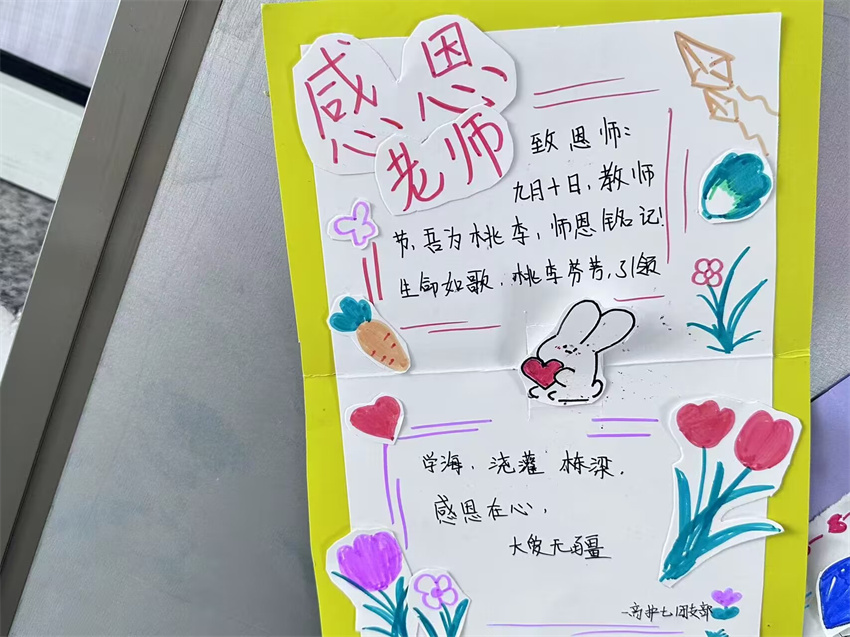 感恩
老师
致恩师:
九月十日,教师
节,吾为桃李,师恩铭记!
生命如歌,桃李芬芳,引领
学海,浇灌栋梁,
感恩在心,
大爱无疆
—高护七团支部